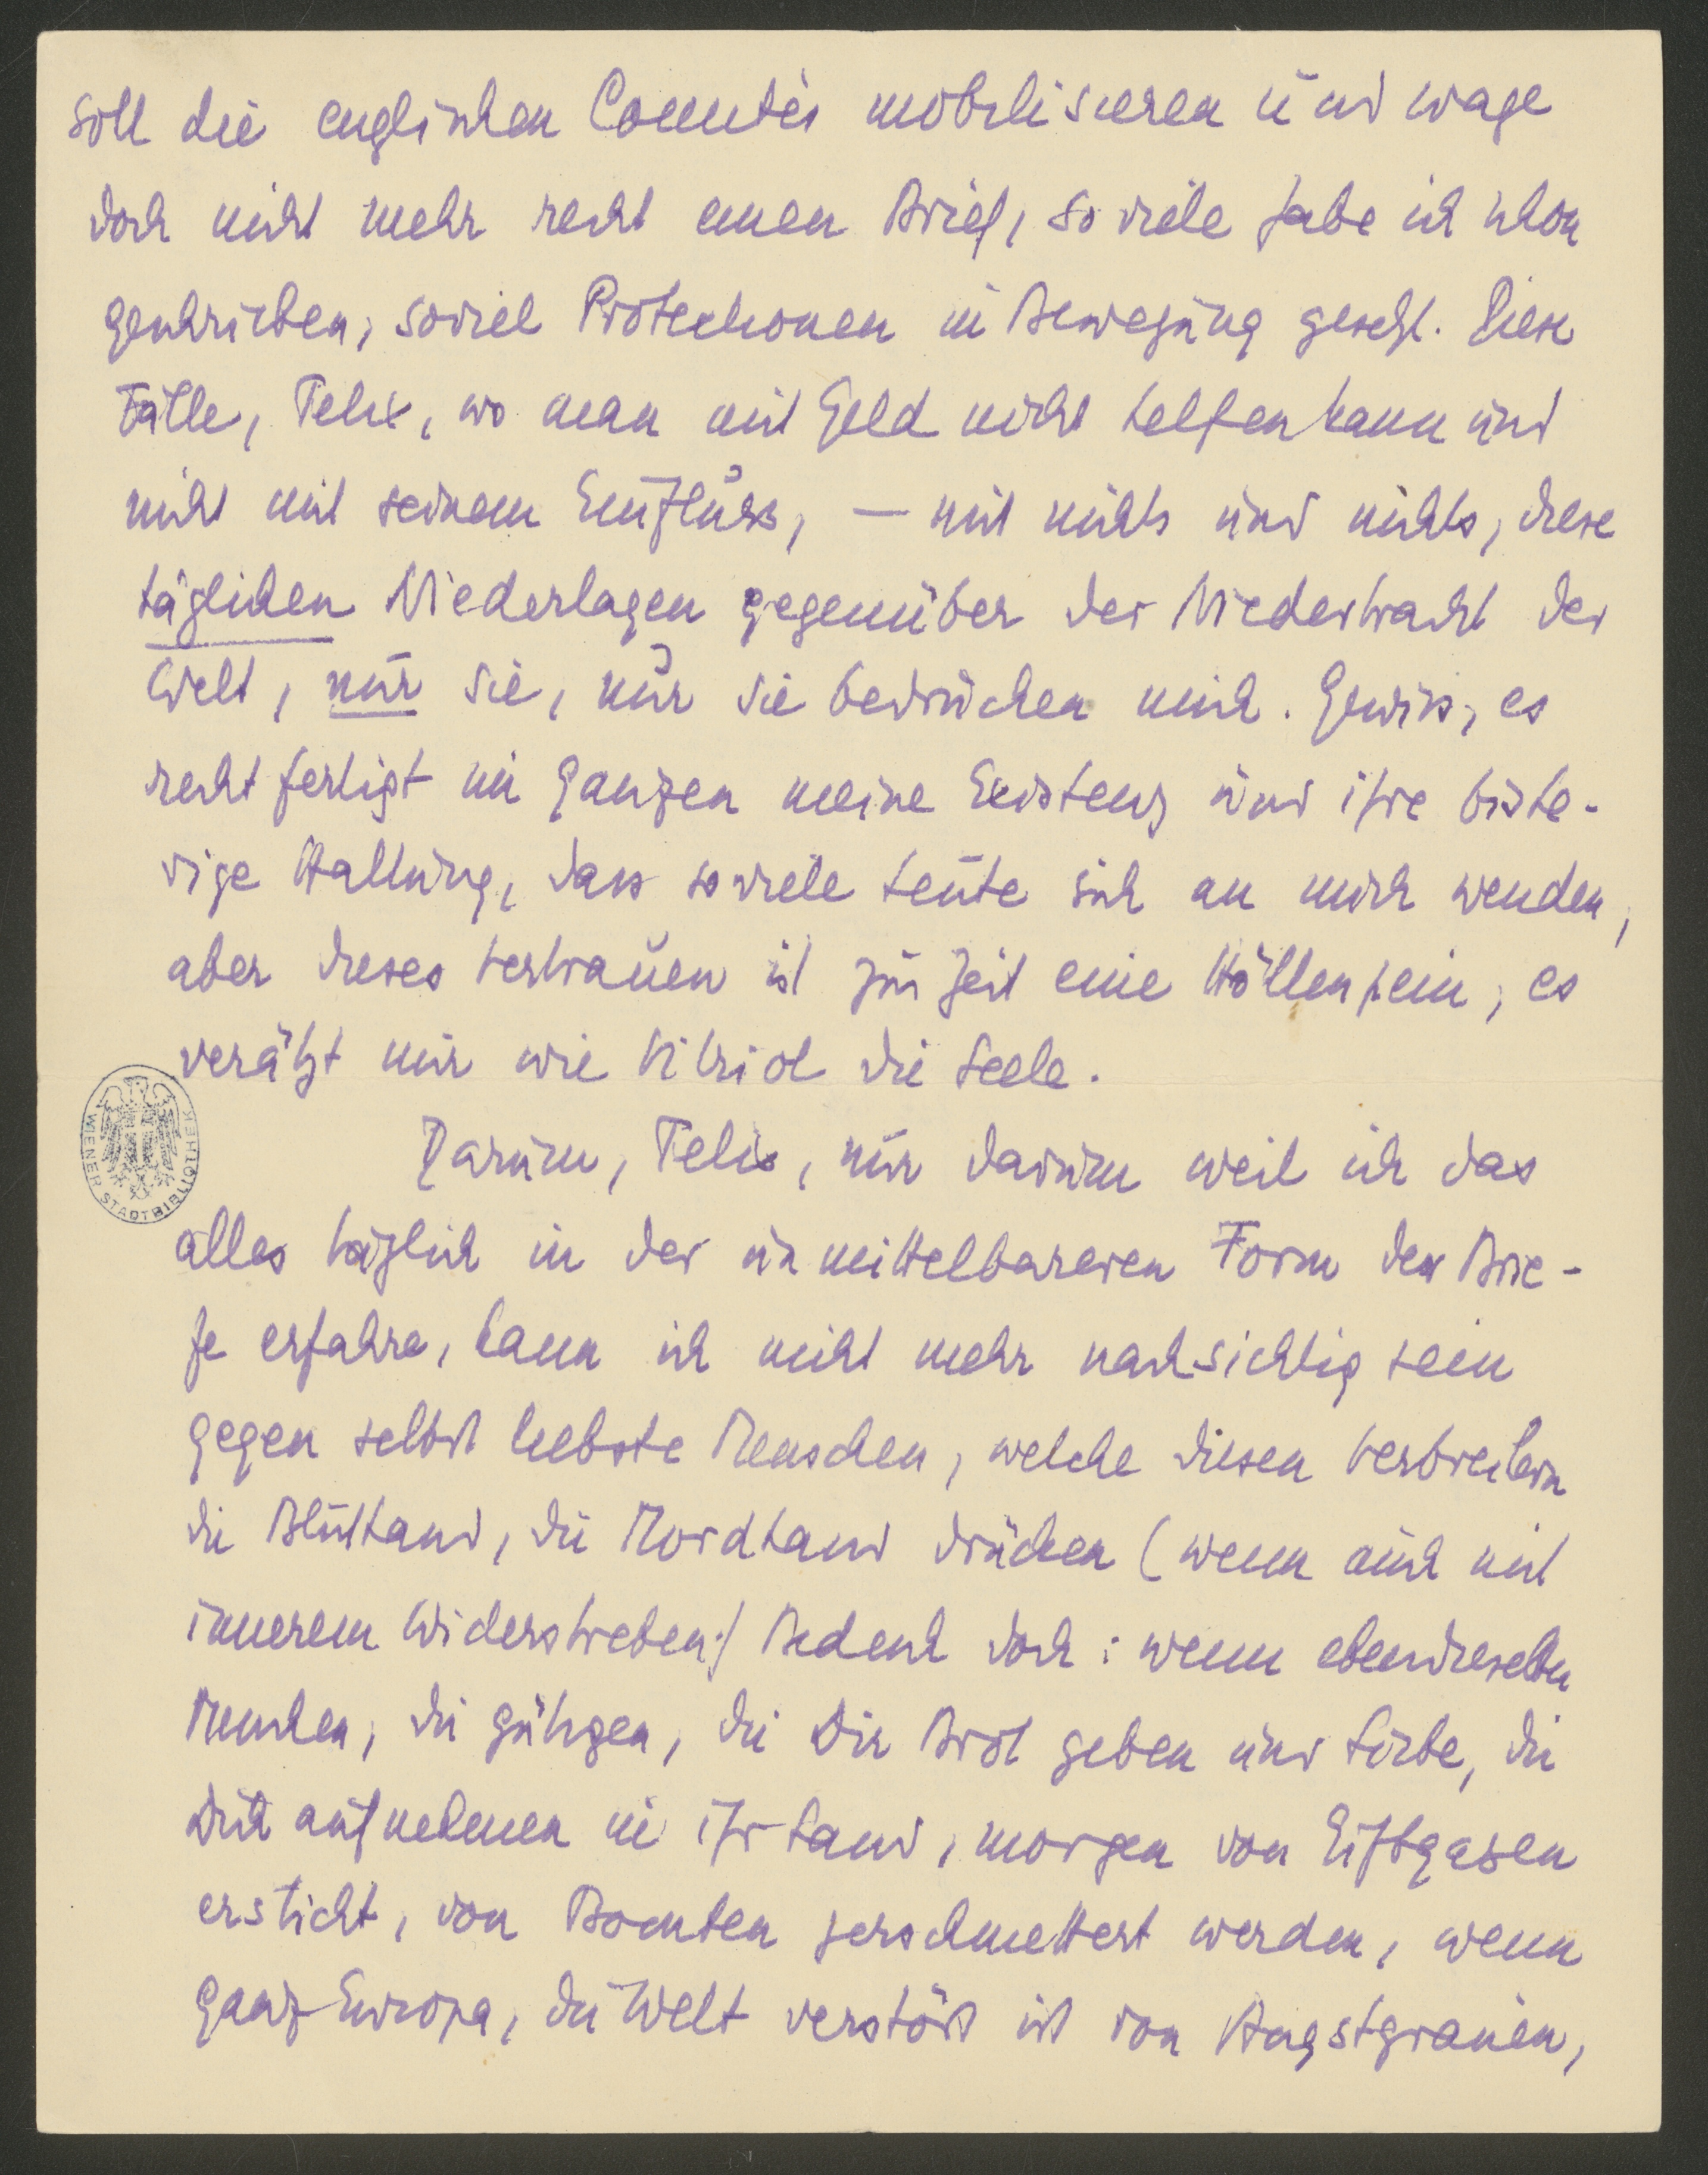 soll die englischen Comités mobilisieren und wage
doch nicht mehr recht einen Brief, so viele habe ich schon
geschrieben, soviel Protectionen in Bewegung gesetzt. Diese
Fälle, Felix, wo man mit Geld nicht helfen kann und
nicht mit seinem Einfluss, — mit nichts und nichts, diese
täglichen Niederlagen gegenüber der Niedertracht der
Welt, nur sie, nur sie bedrücken mich. Gewiss, es
rechtfertigt im Ganzen meine Existenz und ihre bishe-
rige Haltung, dass so viele Leute sich an mich wenden,
aber dieses Vertrauen ist zur Zeit eine Höllenpein, es
verätzt mir wie Vitriol die Seele.
Darum, Felix, nur darum weil ich das
alles täglich in der unmittelbareren Form der Brie-
fe erfahre, kann ich nicht mehr nachsichtig sein
gegen selbst liebste Menschen, welche diesen Verbrechern
die Bluthand, die Mordhand drücken (wenn auch mit
innerem Widerstreben!) Bedenk doch: wenn ebendieselben
Menschen, die gütigen, die Dir Brot geben und Liebe, die
Dich aufnehmen in ihr Land, morgen von Giftgasen
erstickt, von Bomben zerschmettert werden, wenn
ganz Europa, die Welt verstört ist von Angstgrauen,
WIENER STADTBIBLIOTHEK